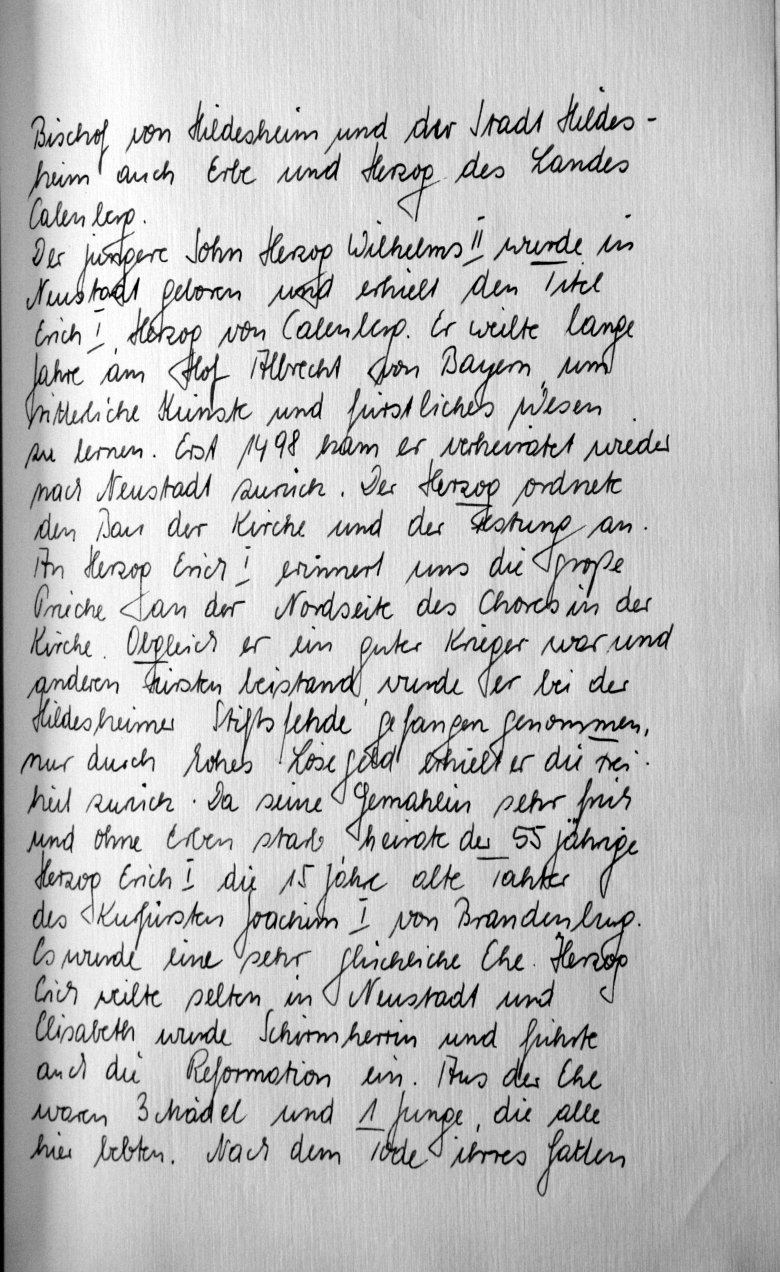 Bischof von Hildesheim und der Stadt Hildes-
heim auch Erbe und Herzog des Landes
Calenberg.
Der jüngere Sohn Herzog Wilhelms II wurde in
Neustadt geboren und erhielt den Titel
Erich I, Herzog von Calenberg. Er weilte lange
Jahre am Hof Albrecht von Bayern, um
ritterliche Künste und fürstliches Wesen
zu lernen. Erst 1498 kam er verheiratet wieder
nach Neustadt zurück. Der Herzog ordnete
den Bau der Kirche und der Festung an.
An Herzog Erich I erinnert uns die große
Prieche an der Nordseite des Chores in der
Kirche. Obgleich er ein guter Krieger war und
anderen Fürsten beistand, wurde er bei der
Hildesheimer Stiftsfehde gefangen genommen,
nur durch hohes Lösegeld erhielt er die Frei-
heit zurück. Da seine Gemahlin sehr früh
und ohne Erben starb heirate der 55 jährige
Herzog Erich I die 15 Jahre alte Tahter
des Kurfürsten Joachim I von Brandenburg.
Es wurde eine sehr glückliche Ehe. Herzog
Erich weilte selten in Neustadt und
Elisabeth wurde Schirmherrin und führte
auch die Reformation ein. Aus der Ehe
waren 3 Mädel und 1 Junge, die alle
hier lebten. Nach dem Tode ihres Gatten